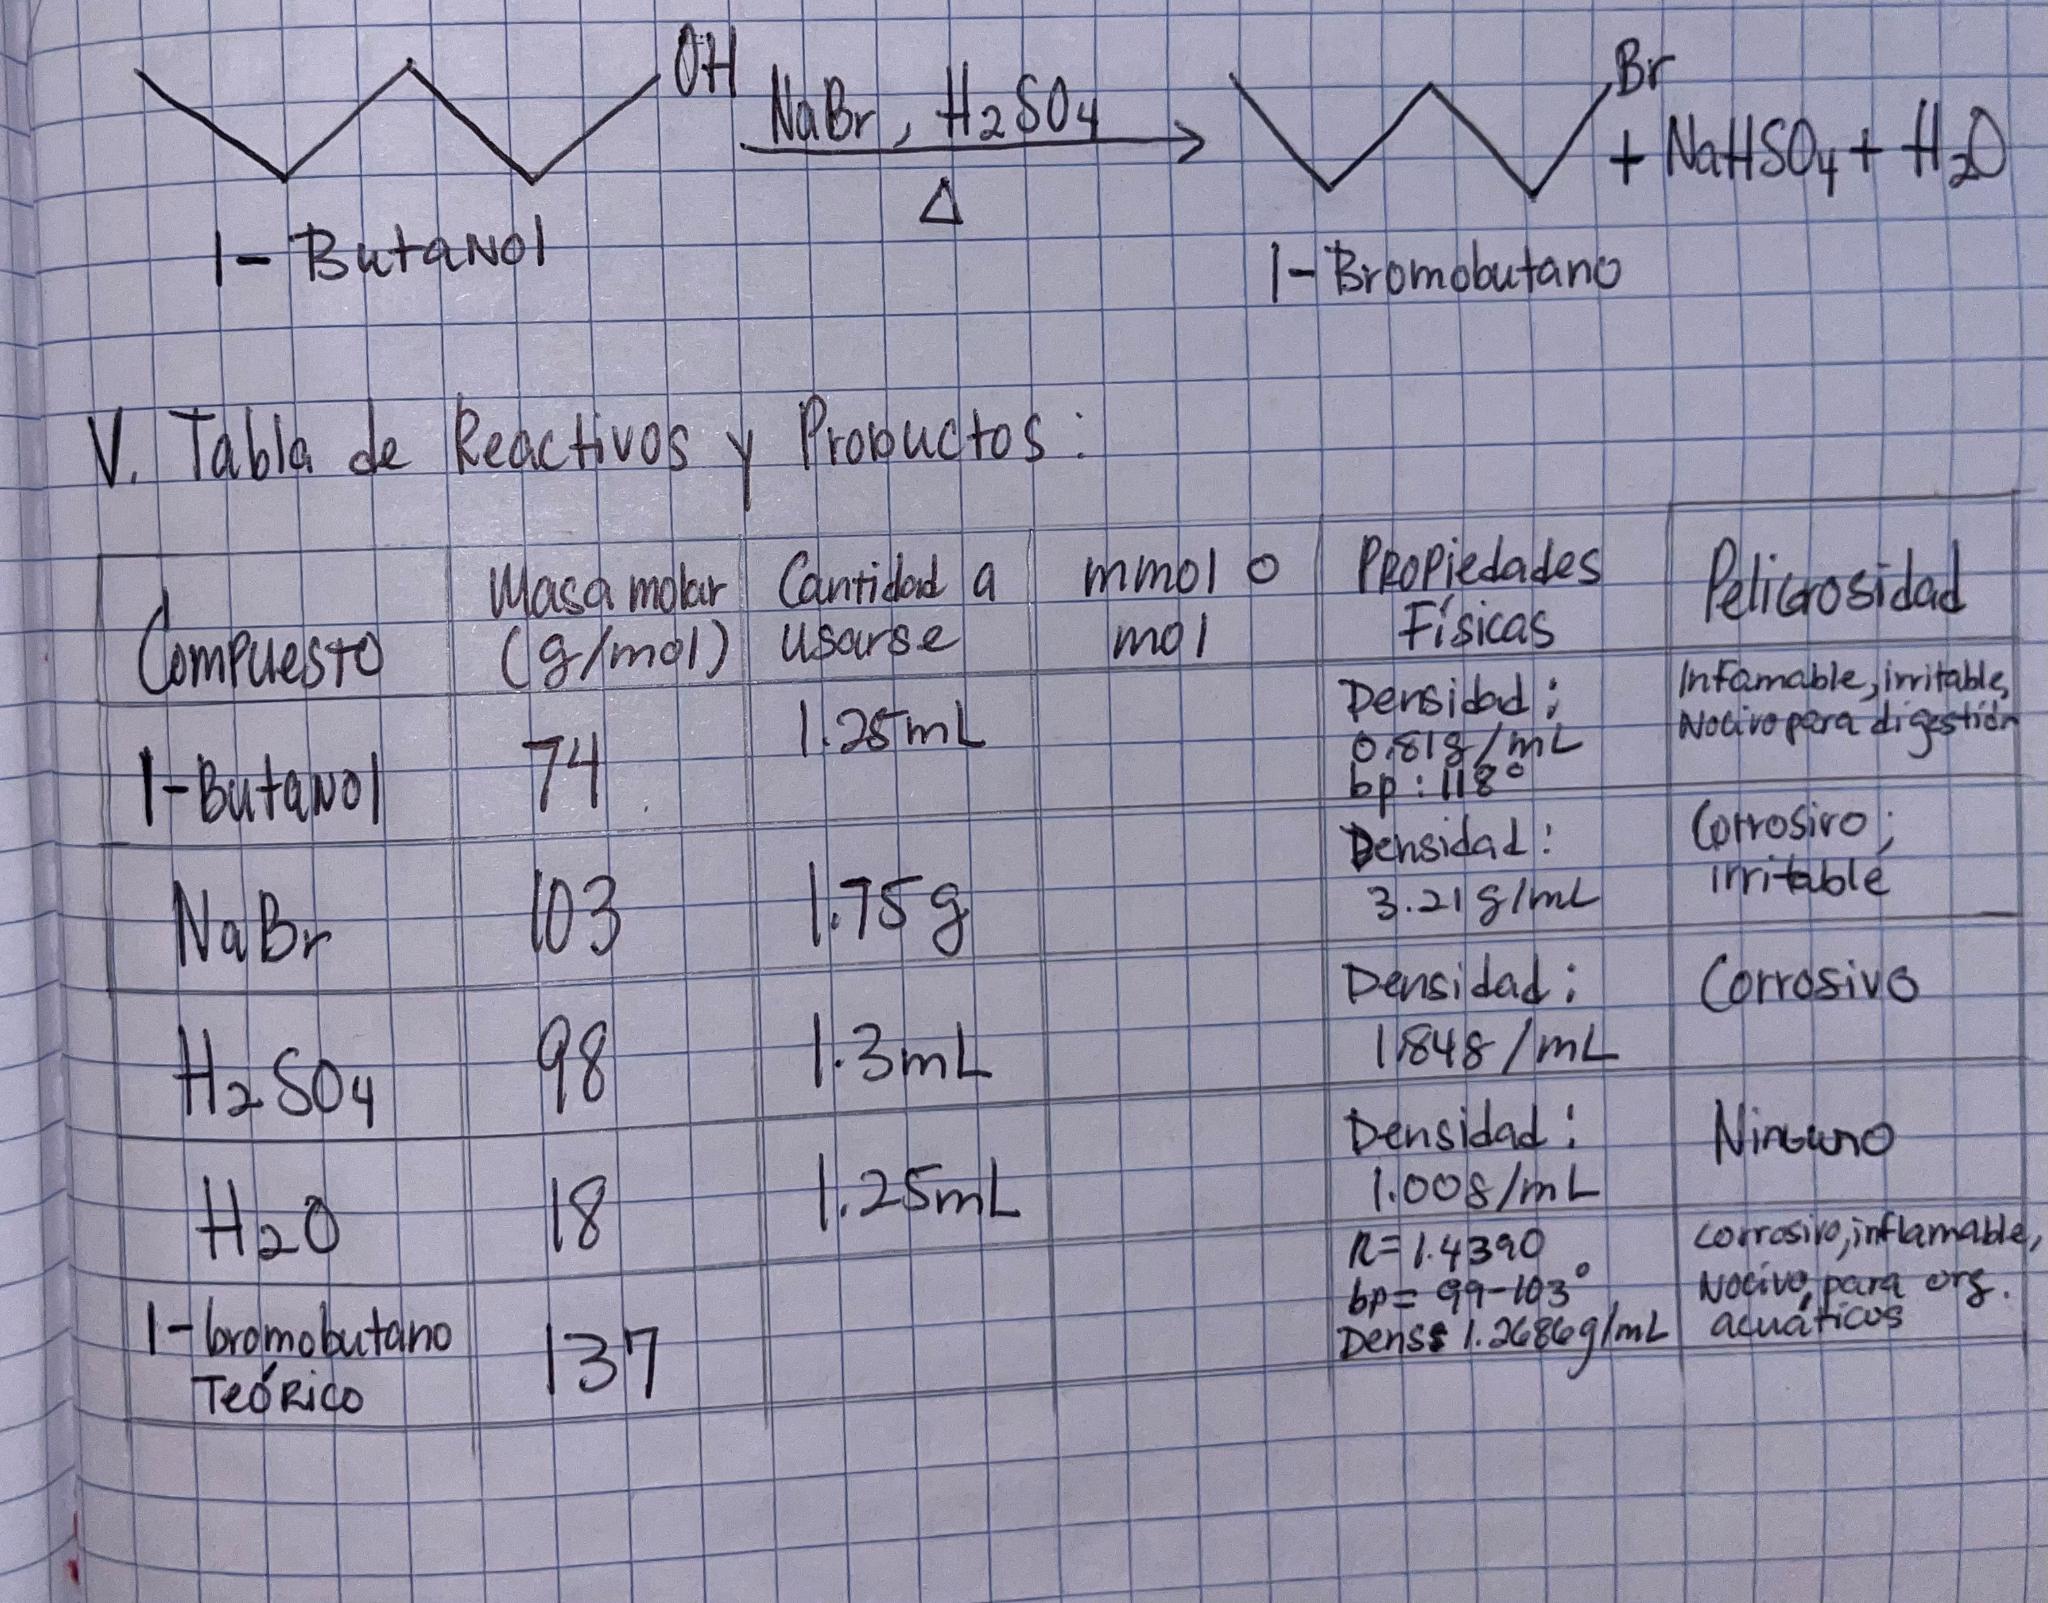 OH
NaBr, H2SO4
Δ
Br
+ NaHSO4 + H2O
1-Butanol
1-Bromobutano
V. Tabla de Reactivos y Productos:
Compuesto
Masa molar
(g/mol)
Cantidad a
usarse
mmol o
mol
Propiedades
Físicas
Peligrosidad
1-Butanol
74
1.25mL
Densidad:
0.81g/mL
bp: 118°
Infamable, irritable,
Nocivo para digestión
NaBr
103
1.75g
Densidad:
3.21g/mL
Corrosivo;
irritable
H2SO4
98
1.3mL
Densidad:
1.84g/mL
Corrosivo
H2O
18
1.25mL
Densidad:
1.00g/mL
Ninguno
1-bromobutano
Teórico
137
n=1.4390
bp= 99-103°
Dens: 1.2686g/mL
corrosivo, inflamable,
Nocivo para org.
acuáticos